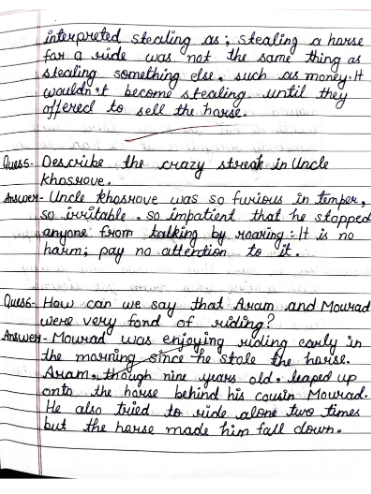 interpreted stealing as; stealing a horse
for a ride was not the same thing as
stealing something else, such as money. It
wouldn't become stealing until they
offered to sell the horse.
Ques5- Describe the crazy streak in Uncle
Khosrove.
Answer- Uncle Khosrove was so furious in temper,
so irritable, so impatient that he stopped
anyone from talking by roaring: It is no
harm; pay no attention to it.
Ques6- How can we say that Aram and Mourad
were very fond of riding?
Answer- Mourad was enjoying riding early in
the morning since he stole the horse.
Aram, though nine years old, leaped up
onto the horse behind his cousin Mourad.
He also tried to ride alone two times
but the horse made him fall down.